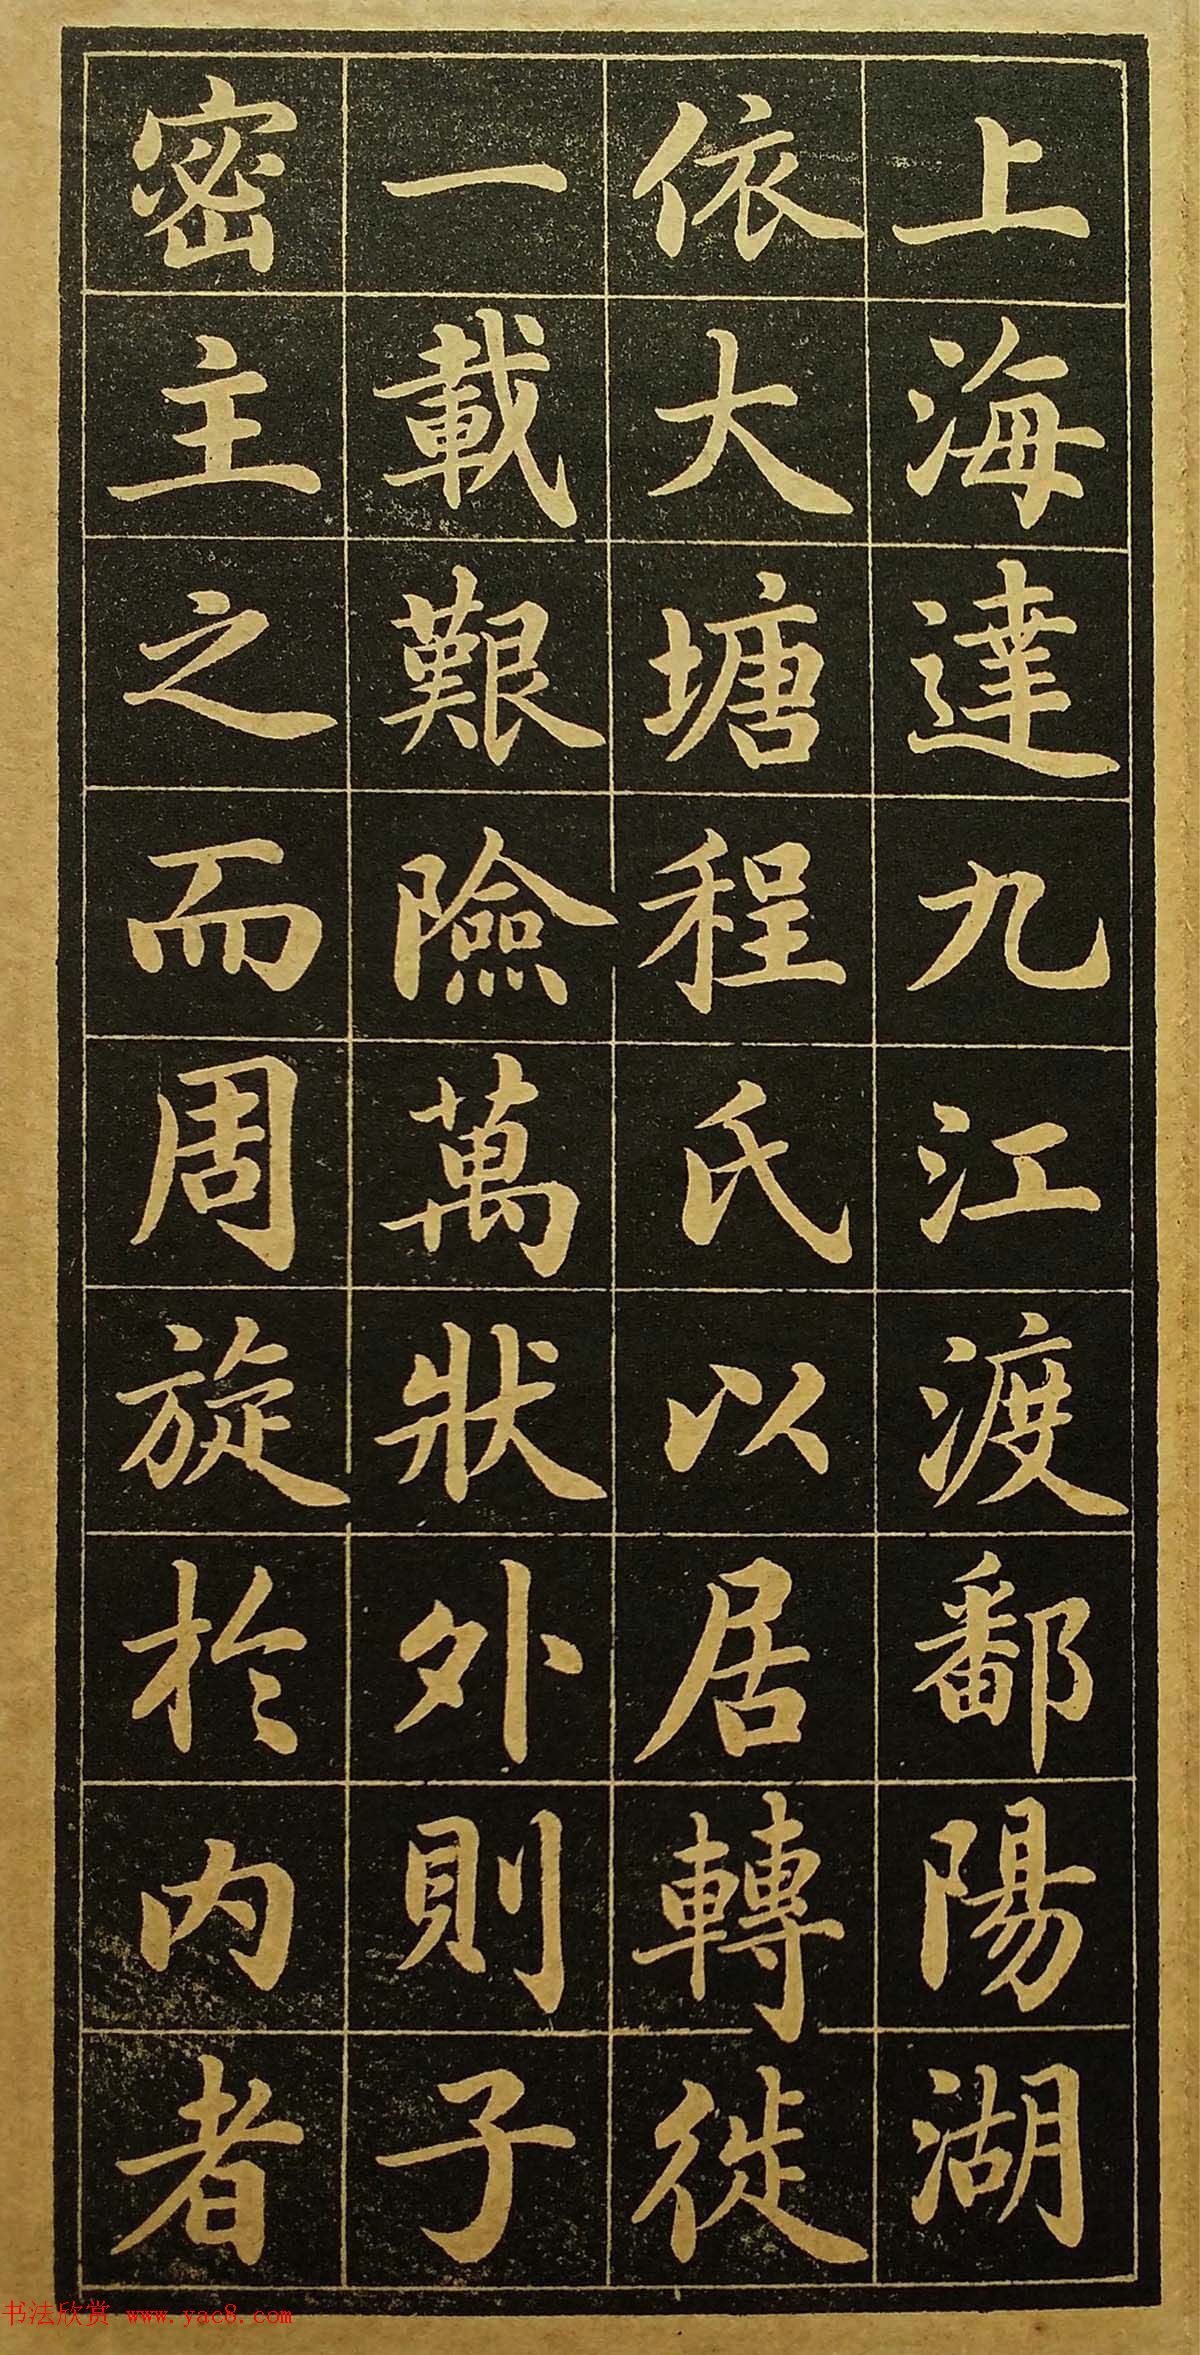 上海達九江渡鄱陽湖
依大塘程氏以居轉徙
一載艱險萬狀外則子
密主之而周旋於内者
书法欣赏 www.yac8.com